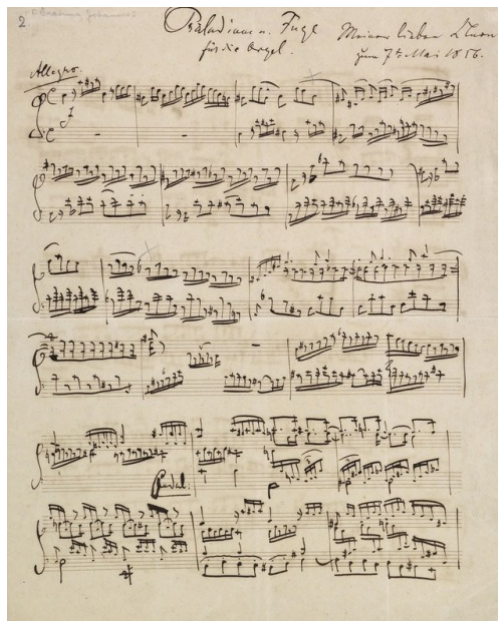 2. (Brahms, Johannes)
Präludium u. Fuge
für die Orgel.
Meiner lieben Clara
zum 7ten Mai 1856.
Allegro.
f
Pedal